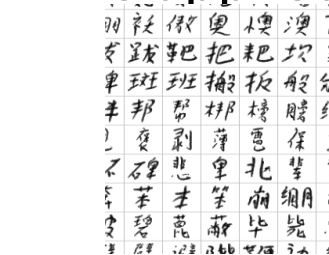 袄 傲 奥 懊 澳
跋 靶 把 耙 坝
斑 班 搬 扳 般
邦 帮 梆 榜 膀
褒 剥 薄 雹 保
碑 悲 卑 北 辈
苯 本 笨 崩 绷
碧 蓖 蔽 毕 毙